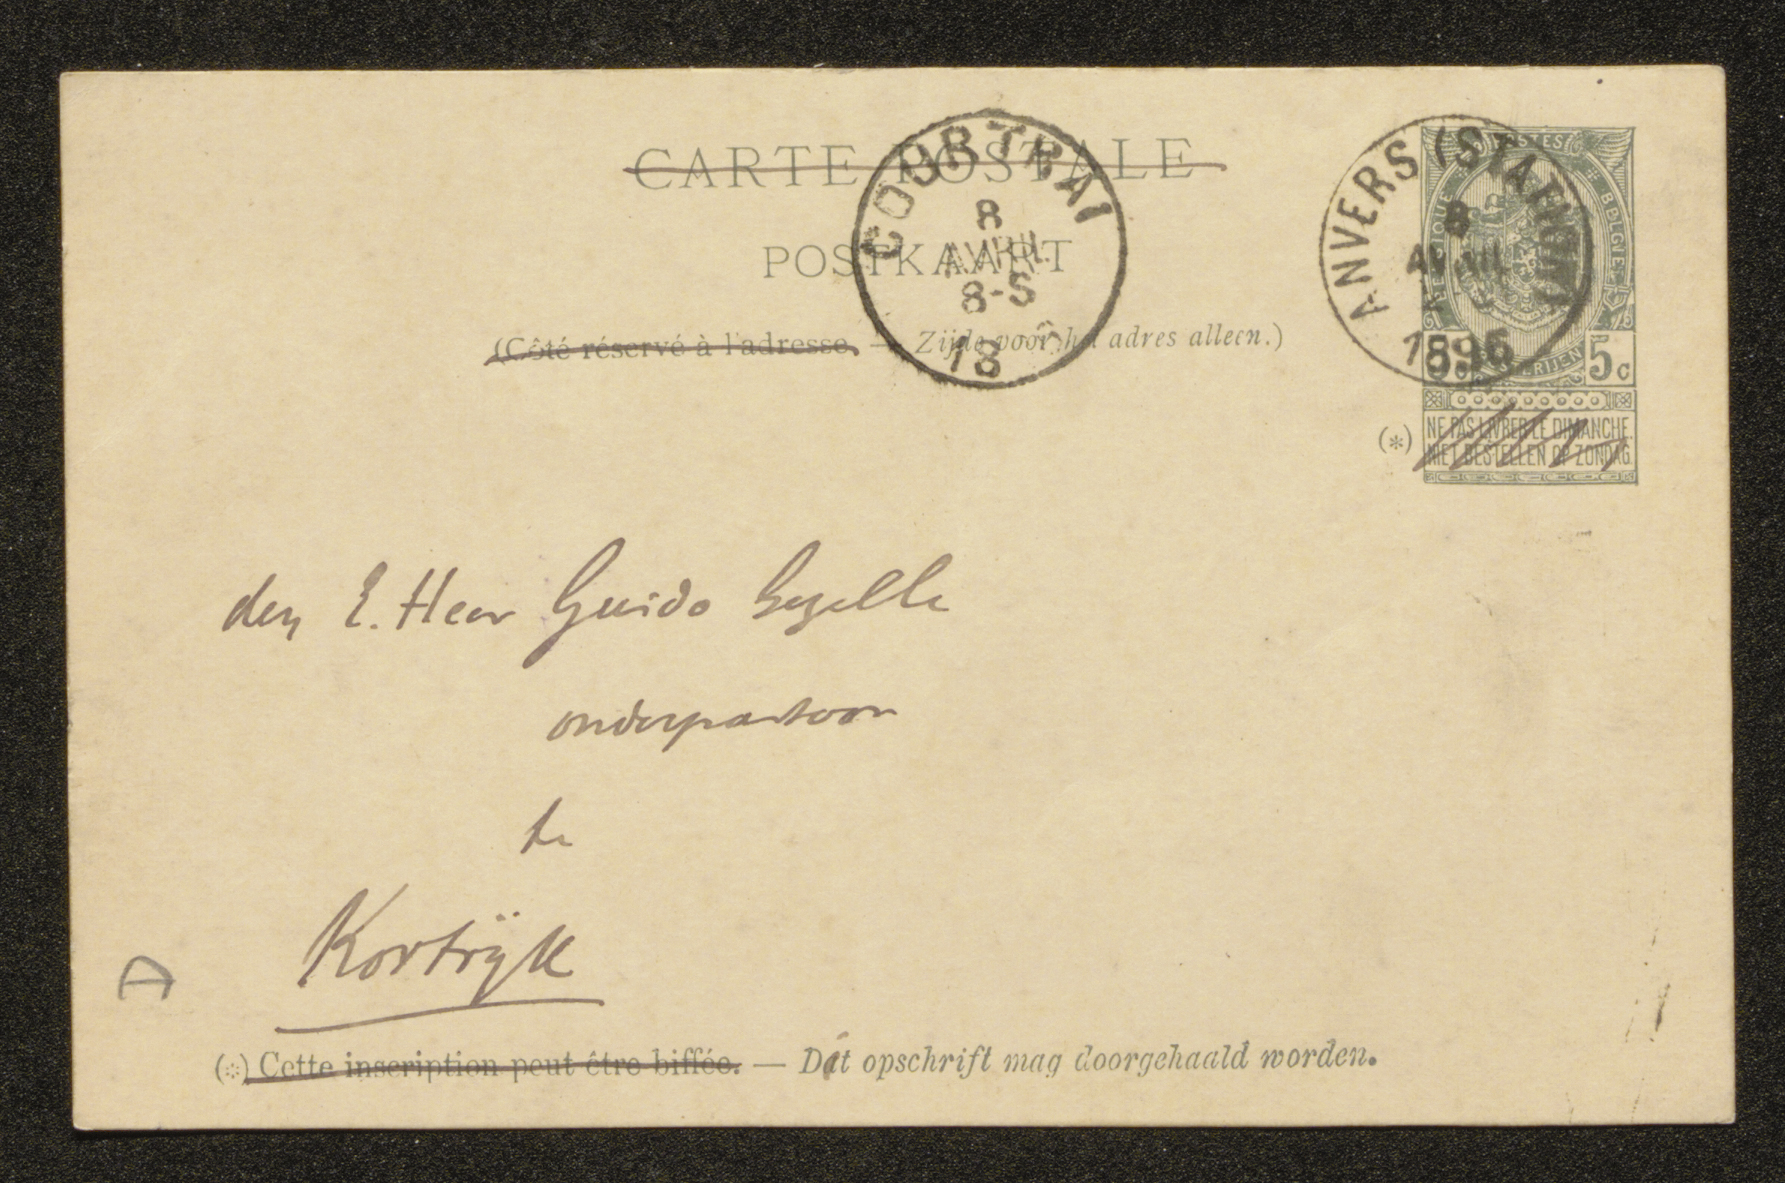 CARTE POSTALE
POSTKAART
(Côté réservé à l'adresse. — Zijde voor het adres alleen.)
COURTRAI
8
AVRIL
8-S
18
ANVERS (STATION)
8
AVRIL
1896
BELGIQUE
BELGIE
5c
(*)
NE PAS LIVRER LE DIMANCHE.
NIET BESTELLEN OP ZONDAG.
den E. Heer Guido Gezelle
onderpastoor
te
Kortrijk
D
(*) Cette inscription peut être biffée. — Dit opschrift mag doorgehaald worden.